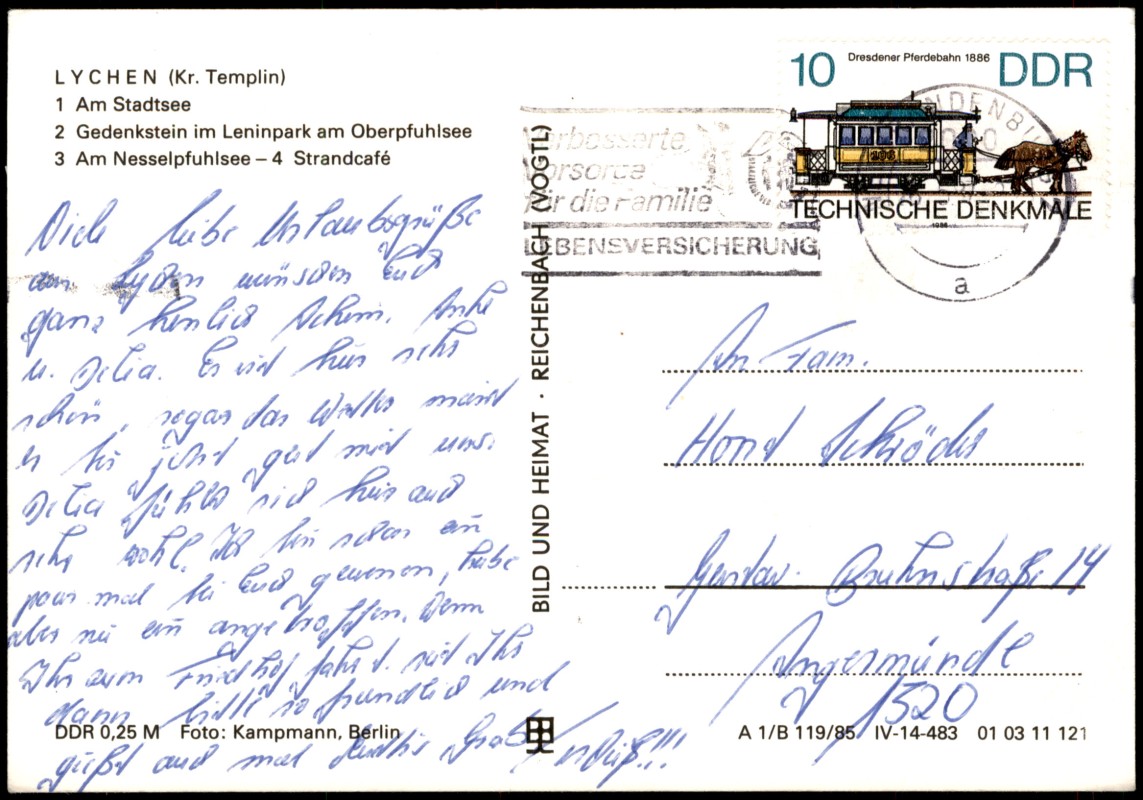 LYCHEN (Kr. Templin)
1 Am Stadtsee
2 Gedenkstein im Leninpark am Oberpfuhlsee
3 Am Nesselpfuhlsee – 4 Strandcafé
Viele liebe Urlaubsgrüße
aus Lychen wünschen Euch
ganz herzlich Achim, Anke
u. Delia. Es ist hier sehr
schön, sogar das Wetter meint
es bis jetzt gut mit uns.
Delia fühlt sich hier auch
sehr wohl. Ich bin schon ein
paar mal bei Euch gewesen, habe
aber nie ein angetroffen. Wenn
Ihr zum Friedhof fahrt, seid Ihr
dann bitte so freundlich und
gießt auch mal
Grab
BILD UND HEIMAT · REICHENBACH (VOGTL)
DDR 0,25 M Foto: Kampmann, Berlin
10 Dresdener Pferdebahn 1886 DDR
206
TECHNISCHE DENKMALE
1986
Verbesserte
Vorsorge
für die Familie
LEBENSVERSICHERUNG
a
An Fam.
Horst Schröder
Gustav-Bruhnstraße 14
Angermünde
1320
A 1/B 119/85 IV-14-483 01 03 11 121